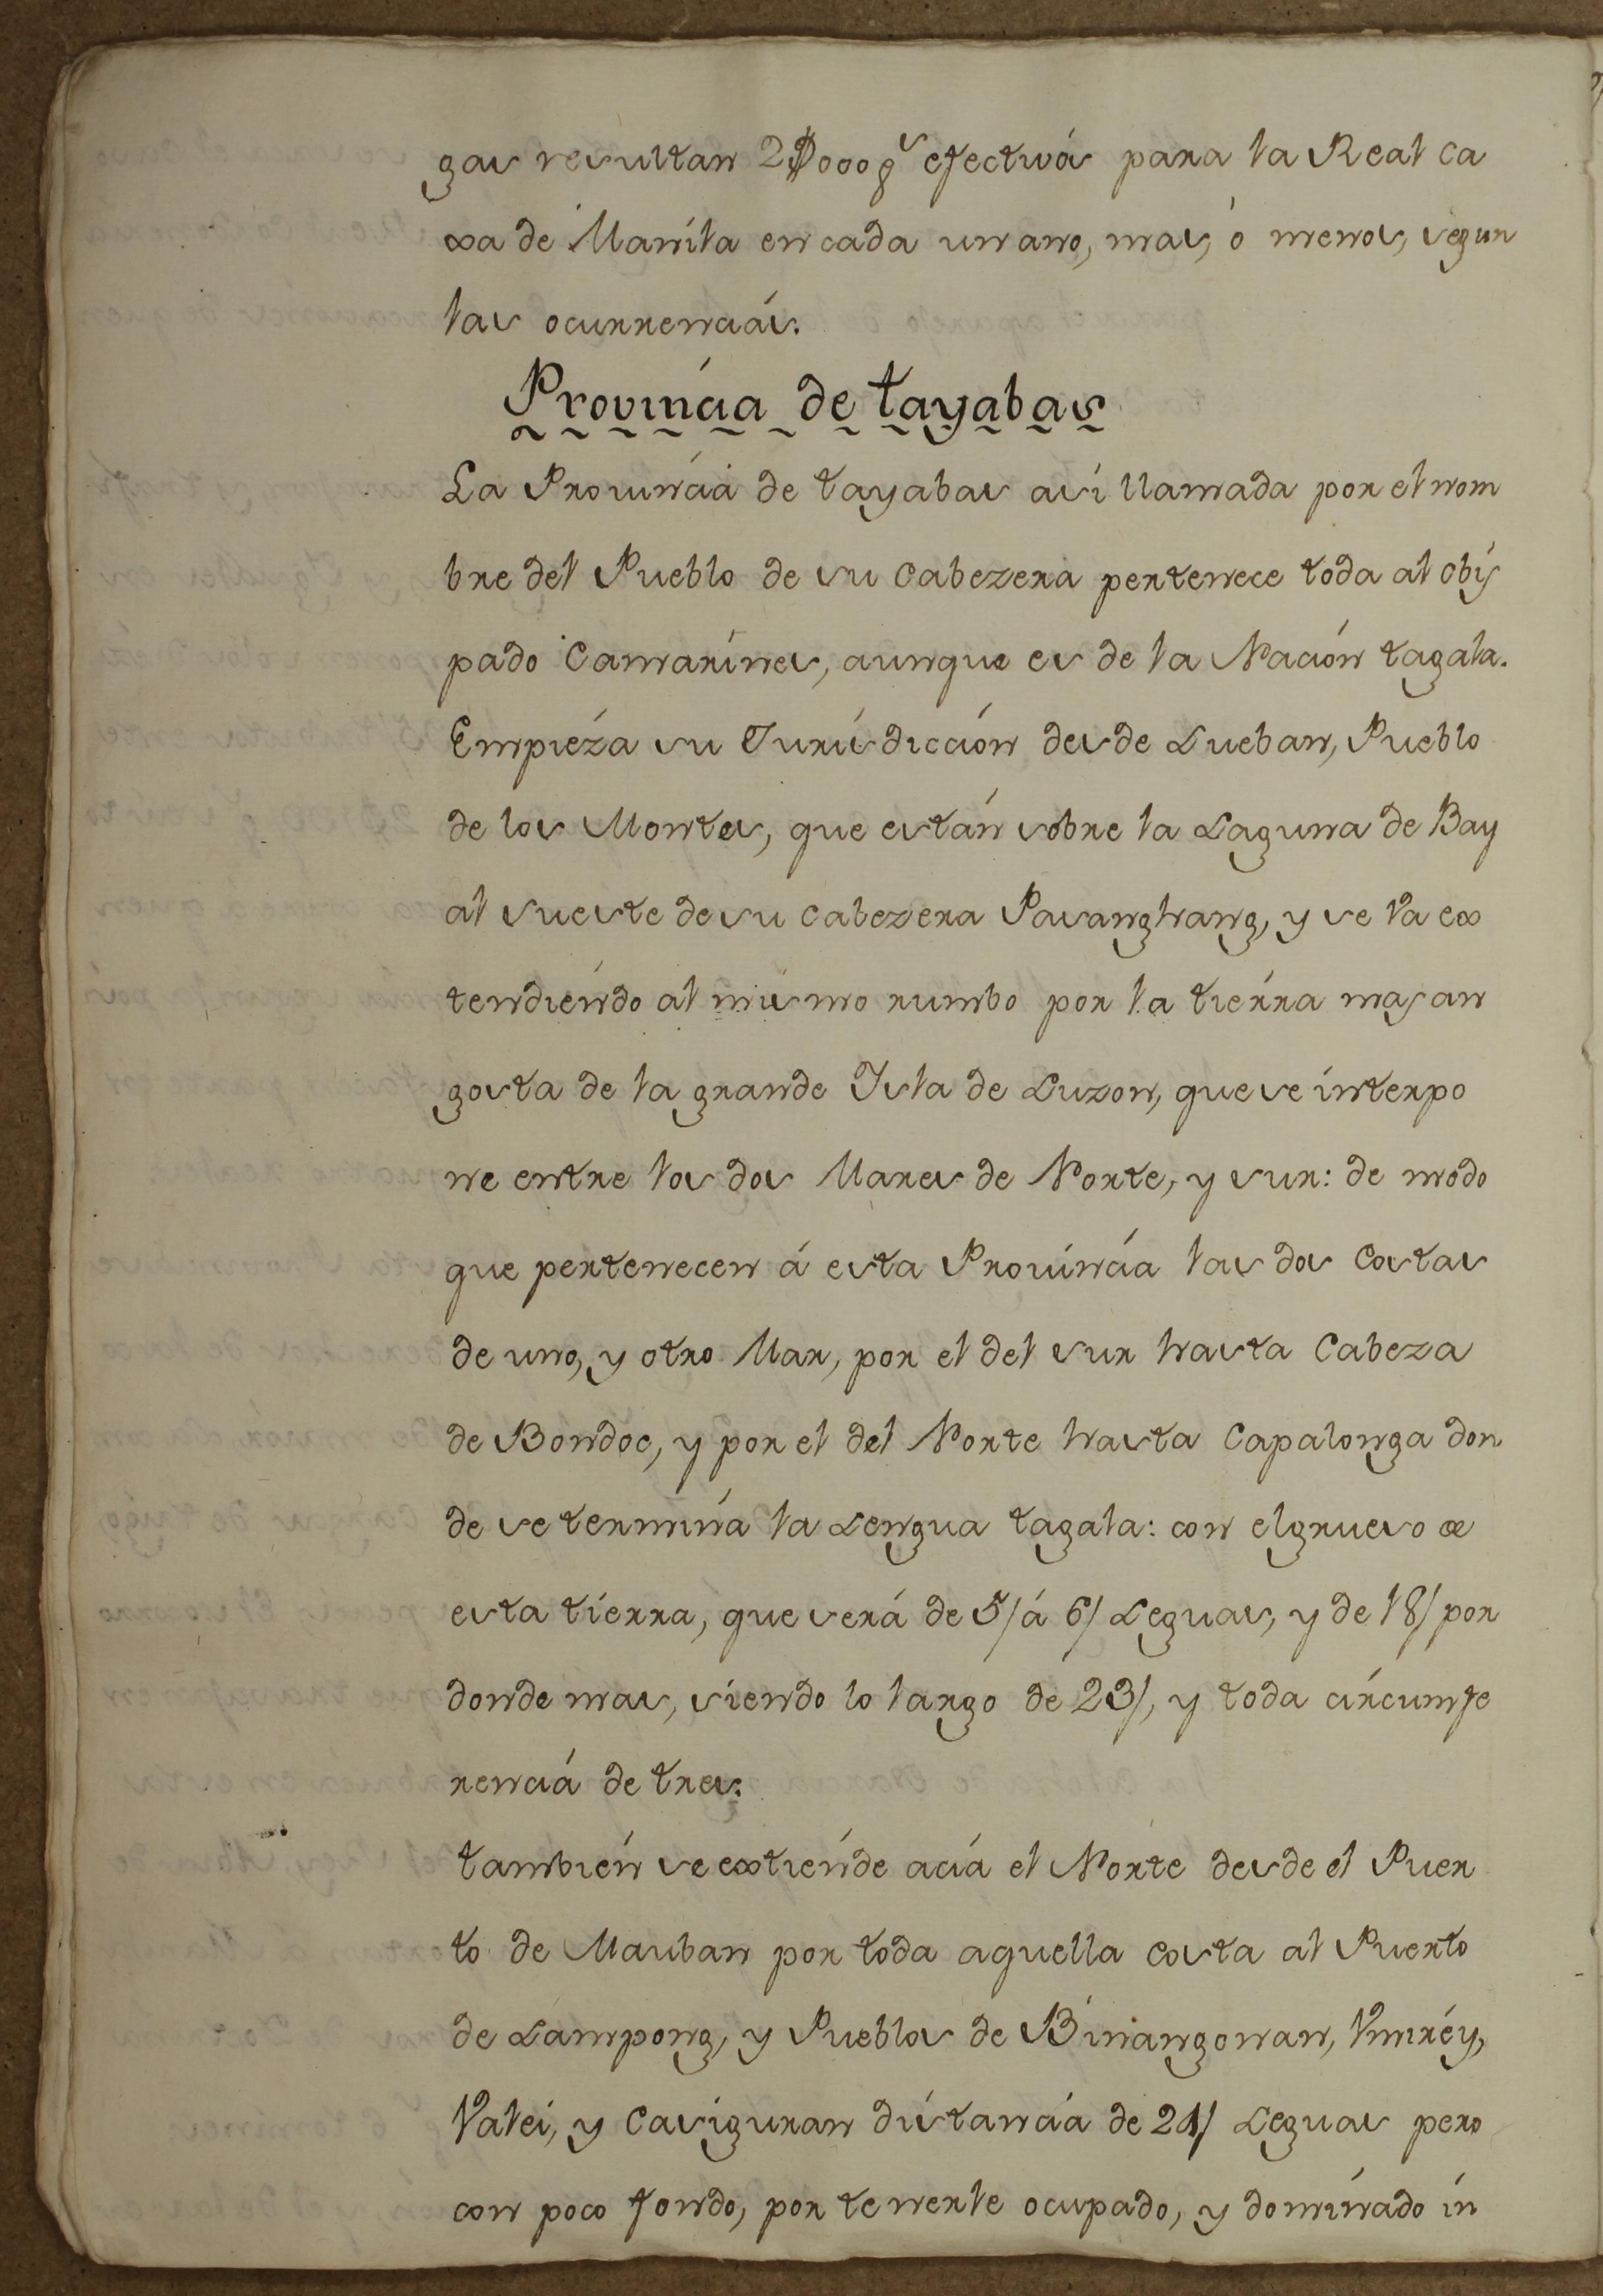 gas resultan 2$000 p.s efectivás para la Real Ca
xa de Manila en cada un ano, mas, ó menos, segun
las ocurrenciás.
Provincia de tayabas
La Provinciá de tayabas así llamada por el nom
bre del Pueblo de su Cabezera pertenece toda al Obis
pado Camarines, aunque es de la Nación tagala.
Empiéza su Jurisdicción desde Lucban, Pueblo
de los Montes, que están sobre la Laguna de Bay
al sueste de su Cabezera Pasanghang, y se va ex
tendiéndo al mismo rumbo por la tiérra mas an
gosta de la grande Isla de Luzon, que se interpo
ne entre los dos Mares de Norte, y sur: de modo
que pertenecen á esta Provincia las dos Costas
de uno, y otro Mar, por el del sur hasta Cabeza
de Bondoc, y por el del Norte hasta Capalonga don
de se termina la Lengua tagala: con el grueso de
esta tierra, que será de 5/ á 6/ Leguas, y de 18/ por
donde mas, siendo lo largo de 23/, y toda circumfe
renciá de tres.
tambien se extiénde aciá el Norte desde el Puer
to de Mauban por toda aquella costa al Puerto
de Lampong, y Pueblos de Binangonan, Vmiréy,
Valei, y Casiguran distancia de 24/ Leguas pero
con poco fondo, por tenerle ocupado, y dominado in